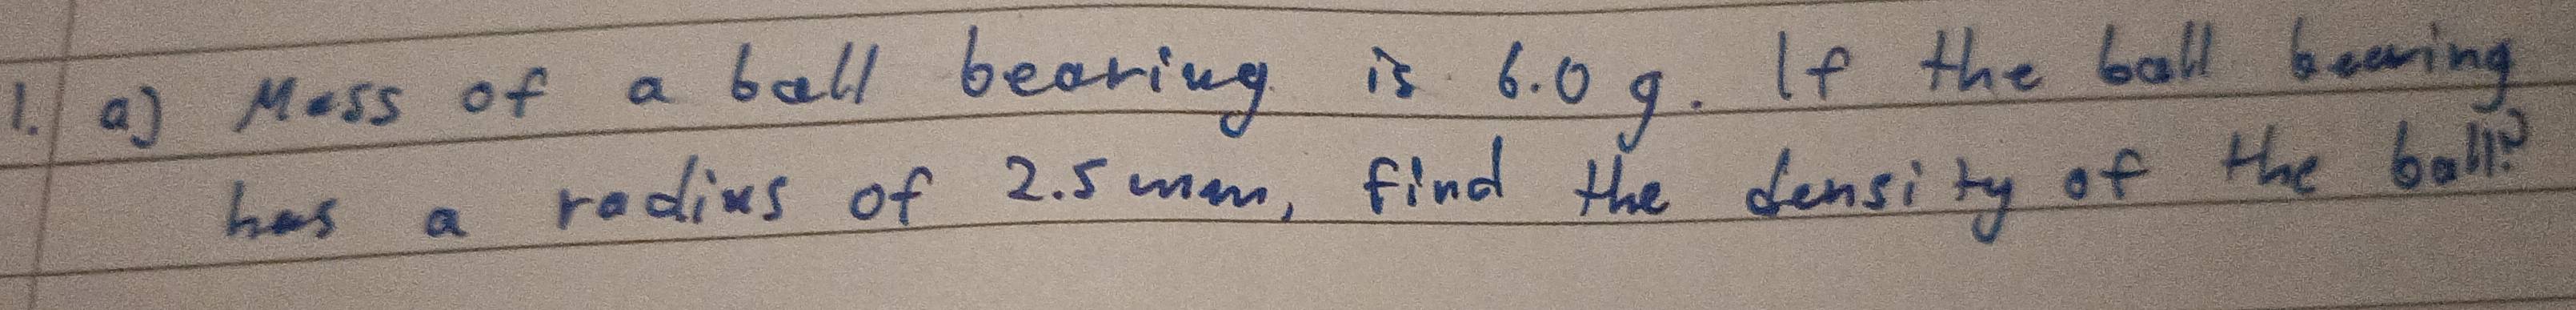 1. a) Mass of a ball bearing is 6.0 g. If the ball bearing
has a radius of 2.5 mm, find the density of the ball?